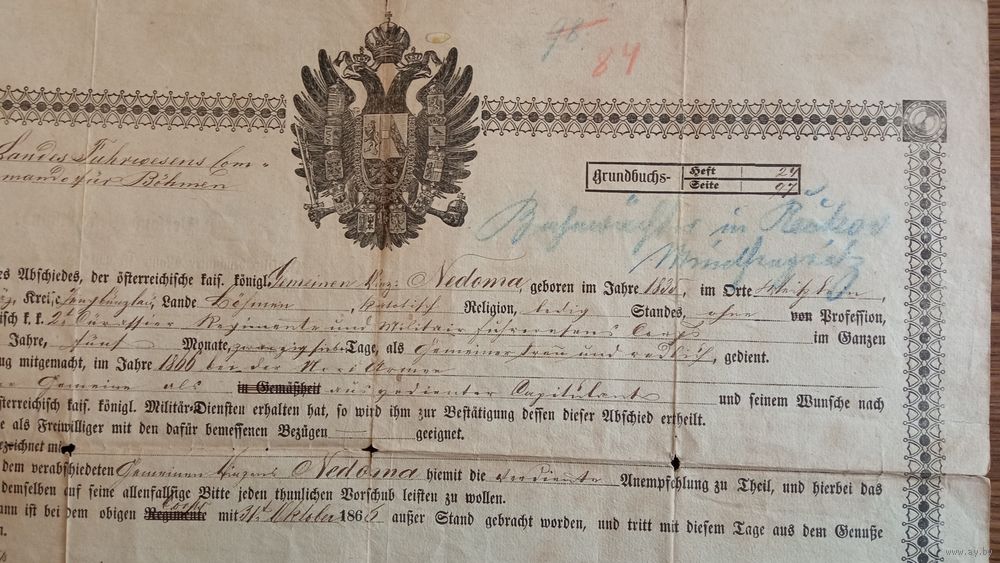 98.
84
Landes Fuhrwesens Com-
mando für Böhmen
Grundbuchs- Heft 24
Seite 97
Bahnwächter in
es Abschiedes, der österreichische kais. königl. Gemeinen Vinz: Nedoma, geboren im Jahre, im Orte
Kreise Jungbunzlau, Lande Böhmen, katolisch Religion, ledig Standes, ohne von Profession,
isch k. k. 2t Cürassier Regimente und Militair fuhrwesens Corps im Ganzen
Jahre, fünf Monate, zwanzig Tage, als Gemeiner treu und redlich, gedient.
ug mitgemacht, im Jahre 1866 bei der Nord Armee
Gemeine als in Gemäßheit ausgedienter Capitulant und seinem Wunsche nach
sterreichisch kais. königl. Militär-Diensten erhalten hat, so wird ihm zur Bestätigung dessen dieser Abschied ertheilt.
e als Freiwilliger mit den dafür bemessenen Bezügen geeignet.
ezeichnet mit
dem verabschiedeten Gemeinen Vinzens Nedoma hiemit die verdiente Anempfehlung zu Theil, und hierbei das
demselben auf seine allenfallsige Bitte jeden thunlichen Vorschub leisten zu wollen.
ann ist bei dem obigen Regimente Corps mit 31t Oktober 1866 außer Stand gebracht worden, und tritt mit diesem Tage aus dem Genuße
n.
www.ay.by